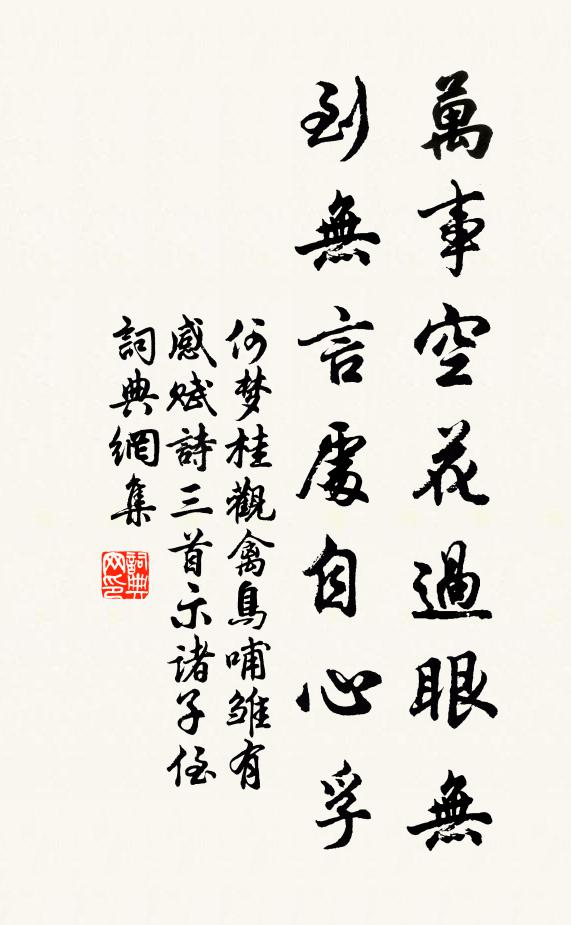 萬事空花過眼無
到無言處自心孚
何梦桂觀禽鳥哺雏有
感赋詩三首示诸子侄
詞典網集
詞典网印